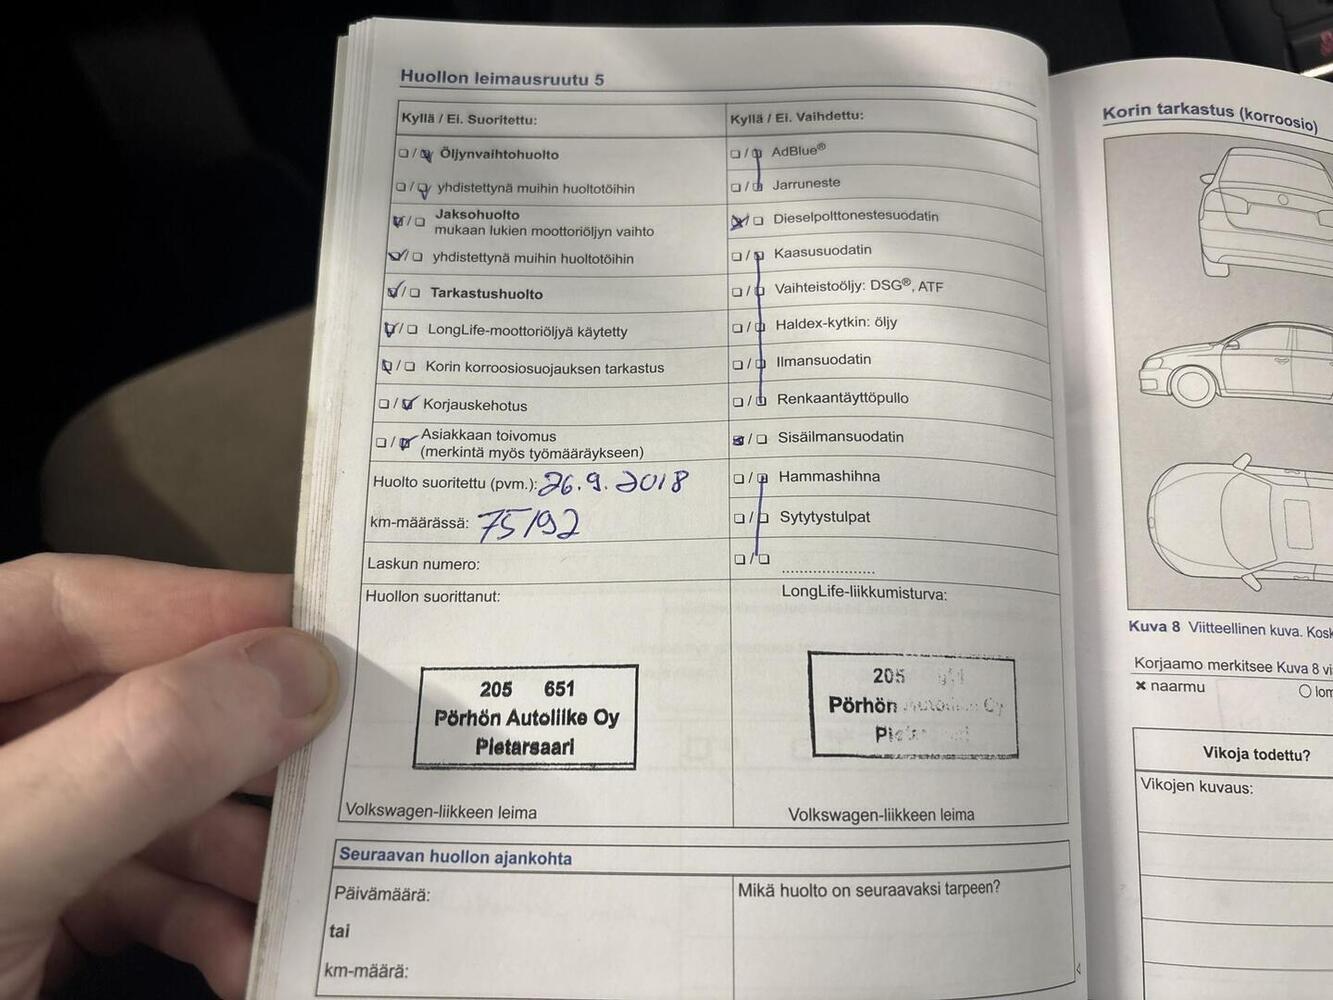 Huollon leimausruutu 5
Kyllä / Ei. Suoritettu:
Öljynvaihtohuolto
yhdistettynä muihin huoltotöihin
Jaksohuolto
mukaan lukien moottoriöljyn vaihto
yhdistettynä muihin huoltotöihin
Tarkastushuolto
LongLife-moottoriöljyä käytetty
Korin korroosiosuojauksen tarkastus
Korjauskehotus
Asiakkaan toivomus
(merkintä myös työmääräykseen)
Huolto suoritettu (pvm.): 26.9.2018
km-määrässä: 75192
Laskun numero:
Huollon suorittanut:
205 651
Pörhön Autoliike Oy
Pietarsaari
Volkswagen-liikkeen leima
Kyllä / Ei. Vaihdettu:
AdBlue®
Jarruneste
Dieselpolttonestesuodatin
Kaasusuodatin
Vaihteistoöljy: DSG®, ATF
Haldex-kytkin: öljy
Ilmansuodatin
Renkaantäyttöpullo
Sisäilmansuodatin
Hammashihna
Sytytystulpat
....................
LongLife-liikkumisturva:
205
Pörhön Autoliike Oy
Volkswagen-liikkeen leima
Seuraavan huollon ajankohta
Päivämäärä:
tai
km-määrä:
Mikä huolto on seuraavaksi tarpeen?
Korin tarkastus (korroosio)
Kuva 8 Viitteellinen kuva. Kosk
Korjaamo merkitsee Kuva 8 vi
× naarmu
O lom
Vikoja todettu?
Vikojen kuvaus: